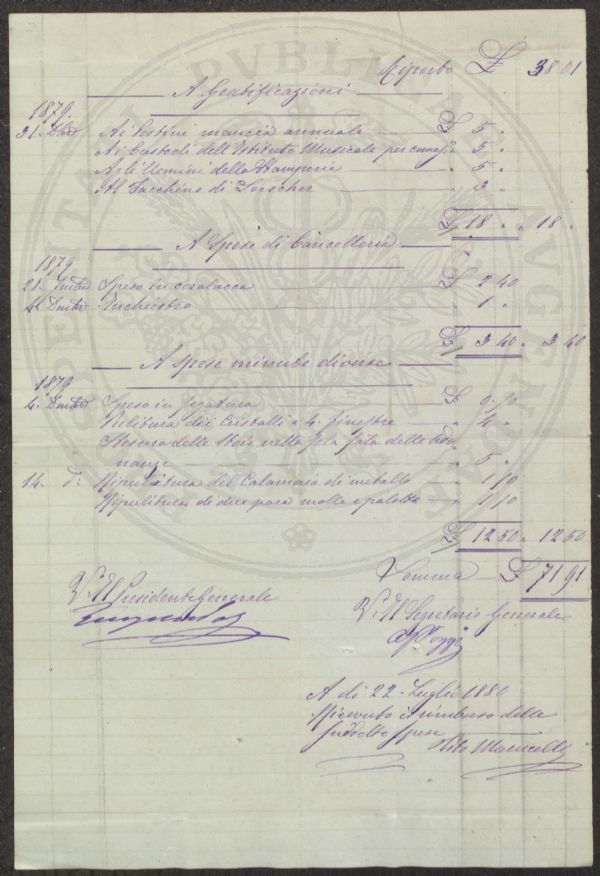 Riporto £ 38 01
A Gratificazioni
1879
31. Dbre Ai Postini mancia annuale £ 5 "
Ai Custodi dell'Istituto Musicale per " 5 "
Agli Uomini della Stamperia " 5 "
Al Facchino di Loescher " 3 "
£ 18 " " 18 "
A Spese di Cancelleria
1879
Spese in ceralacca £ 2 40
Inchiostro " 1 "
£ 3 40 " 3 40
A spese minute diverse
1879
4. Spese in £
Pulitura dei Cristalli a 4. finestre " 4 "
delle nella Sala delle Adu
nanze " 5 "
14. d: Ripulitura del Calamaio di metallo "
Ripulitura di due para molle e palette "
£ 12 50 " 12 50
Somma £ 71 91
V: Il Presidente Generale
V: Il Segretario Generale
A dì 22. Luglio 1880
Ricevuto il rimborso delle
suddette spese